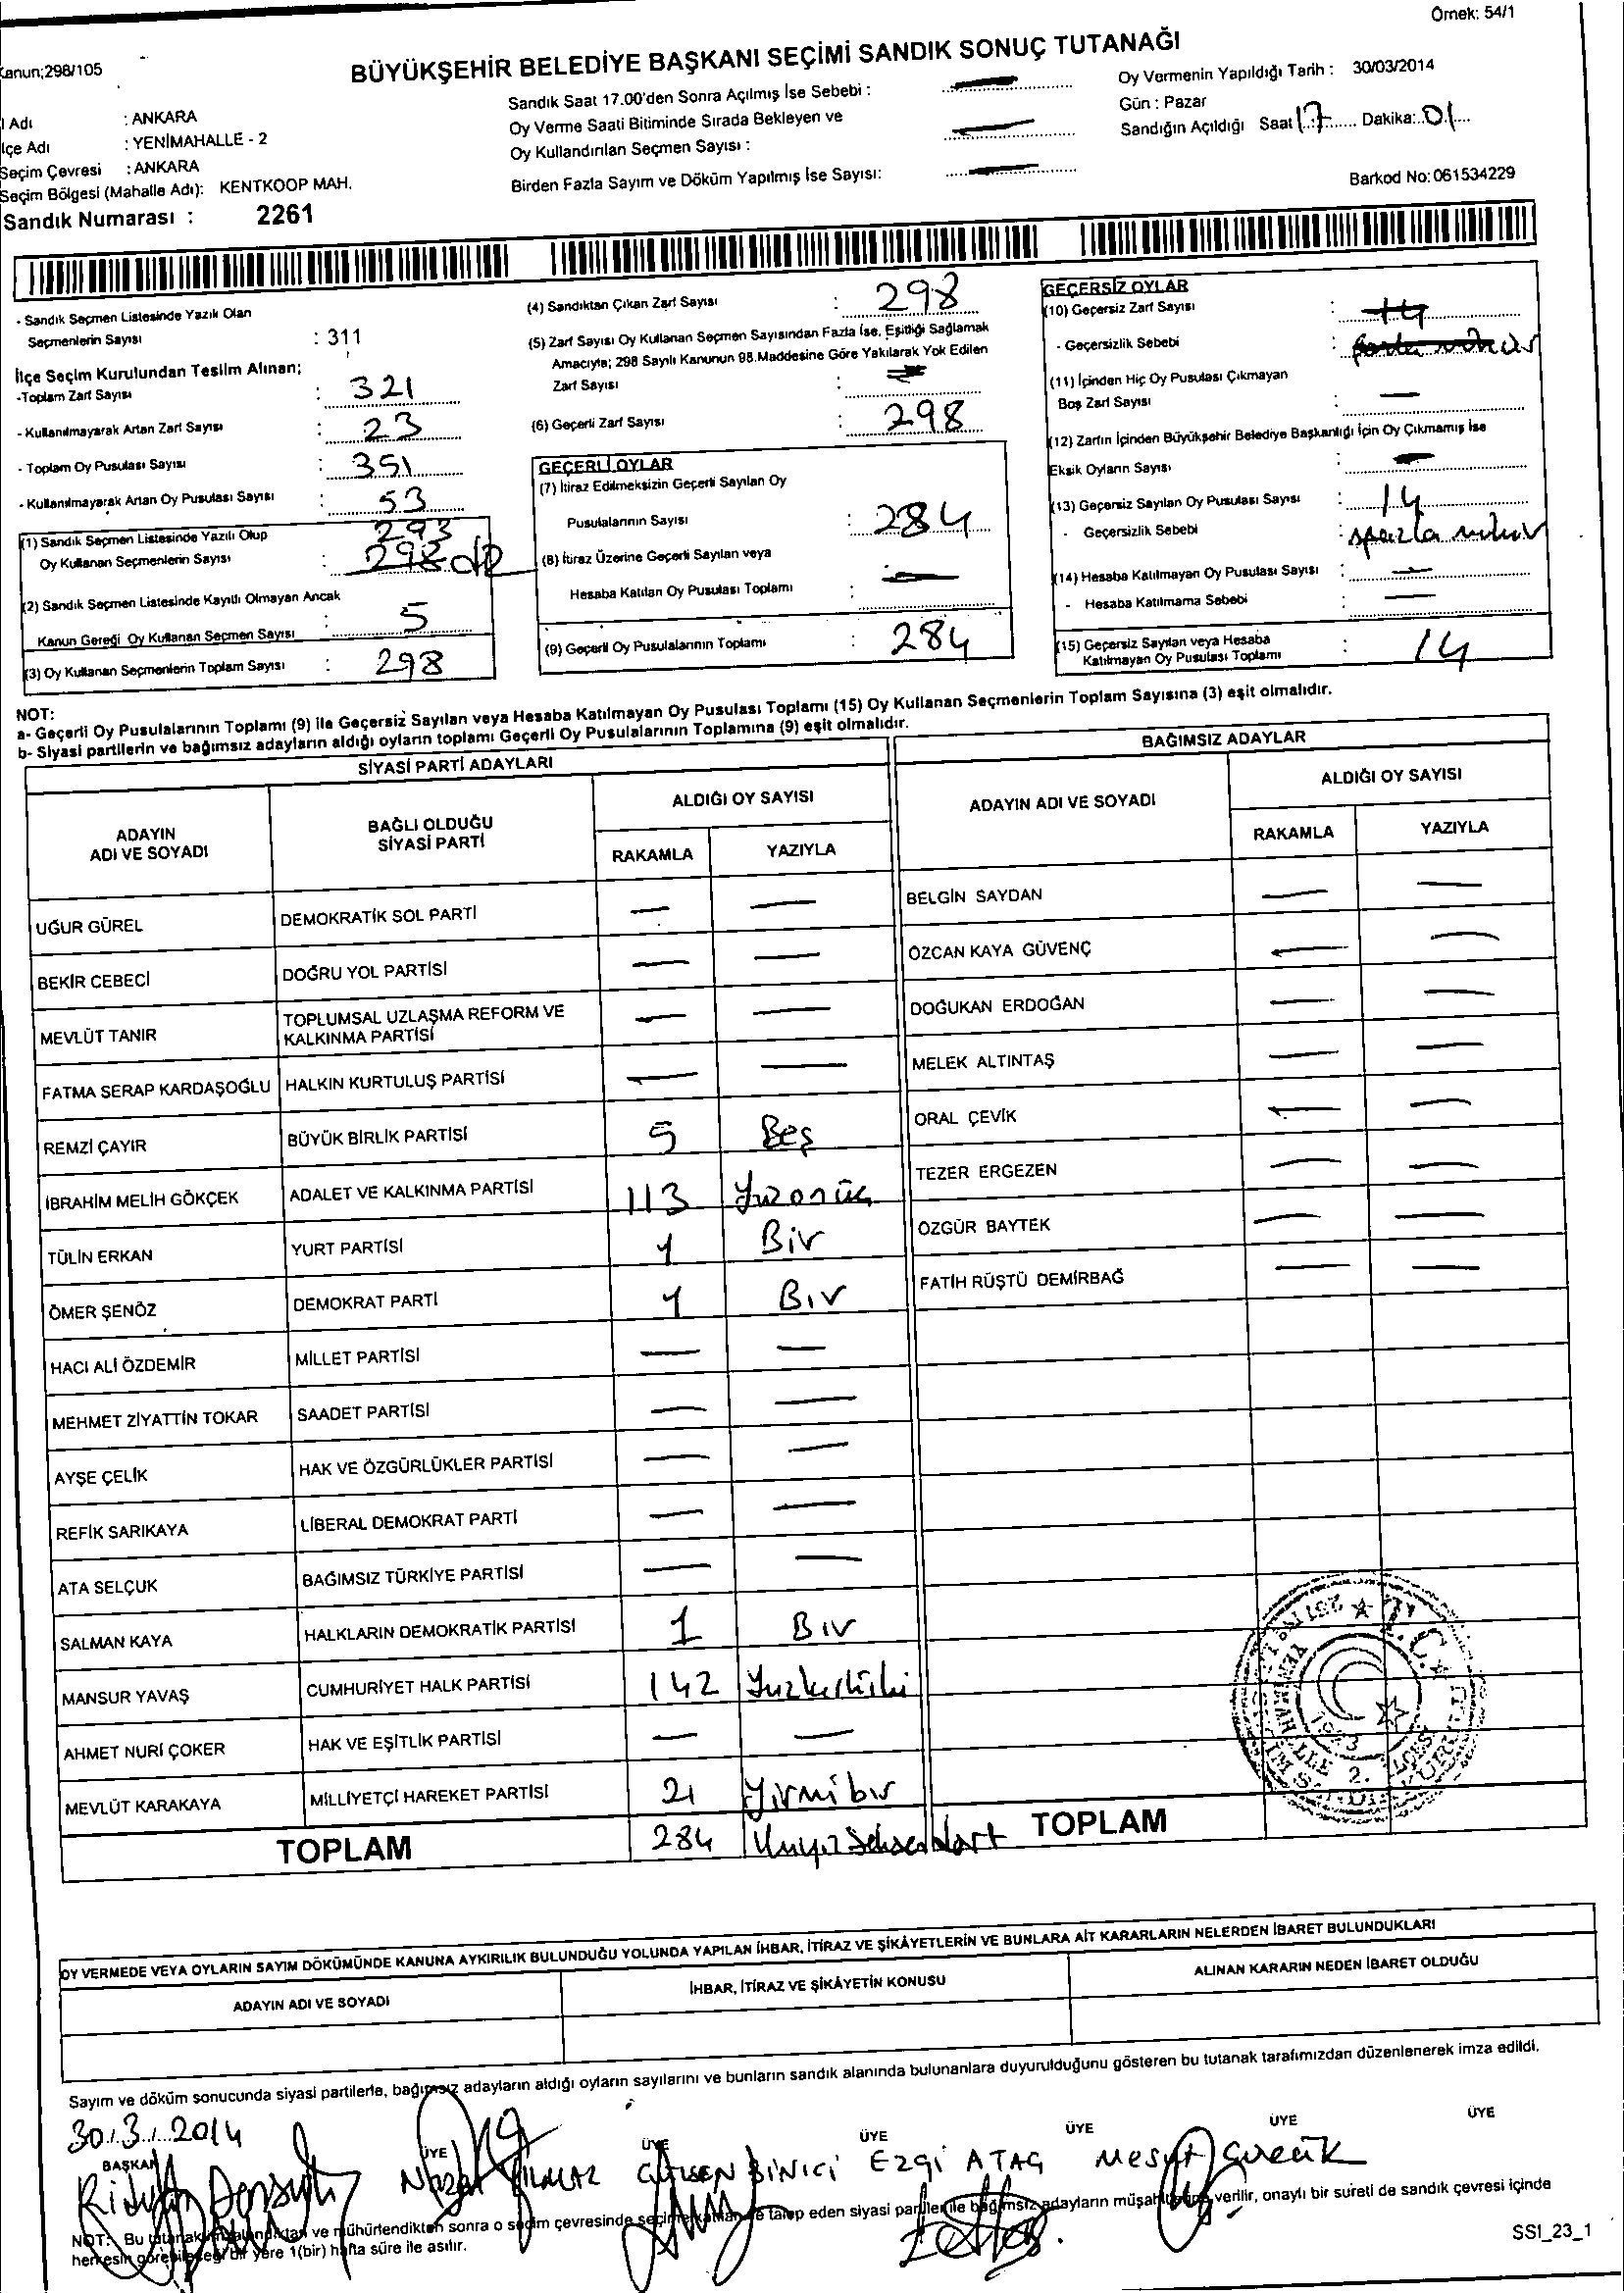 Örnek: 54/1
Kanun;298/105
BÜYÜKŞEHİR BELEDİYE BAŞKANI SEÇİMİ SANDIK SONUÇ TUTANAĞI
Adı : ANKARA
İlçe Adı : YENİMAHALLE - 2
Seçim Çevresi : ANKARA
Seçim Bölgesi (Mahalle Adı): KENTKOOP MAH.
Sandık Numarası : 2261
Sandık Saat 17.00'den Sonra Açılmış İse Sebebi : —
Oy Verme Saati Bitiminde Sırada Bekleyen ve
Oy Kullandırılan Seçmen Sayısı : —
Birden Fazla Sayım ve Döküm Yapılmış İse Sayısı: —
Oy Vermenin Yapıldığı Tarih : 30/03/2014
Gün : Pazar
Sandığın Açıldığı Saat 17 Dakika: 01
Barkod No: 061534229
- Sandık Seçmen Listesinde Yazılı Olan
Seçmenlerin Sayısı : 311
İlçe Seçim Kurulundan Teslim Alınan;
-Toplam Zarf Sayısı : 321
- Kullanılmayarak Artan Zarf Sayısı : 23
- Toplam Oy Pusulası Sayısı : 351
- Kullanılmayarak Artan Oy Pusulası Sayısı : 53
293
(1) Sandık Seçmen Listesinde Yazılı Olup
Oy Kullanan Seçmenlerin Sayısı : 298
(2) Sandık Seçmen Listesinde Kayıtlı Olmayan Ancak
Kanun Gereği Oy Kullanan Seçmen Sayısı : 5
(3) Oy Kullanan Seçmenlerin Toplam Sayısı : 298
(4) Sandıktan Çıkan Zarf Sayısı : 298
(5) Zarf Sayısı Oy Kullanan Seçmen Sayısından Fazla İse, Eşitliği Sağlamak
Amacıyla; 298 Sayılı Kanunun 98.Maddesine Göre Yakılarak Yok Edilen
Zarf Sayısı : —
(6) Geçerli Zarf Sayısı : 298
GEÇERLİ OYLAR
(7) İtiraz Edilmeksizin Geçerli Sayılan Oy
Pusulalarının Sayısı : 284
(8) İtiraz Üzerine Geçerli Sayılan veya
Hesaba Katılan Oy Pusulası Toplamı : —
(9) Geçerli Oy Pusulalarının Toplamı : 284
GEÇERSİZ OYLAR
(10) Geçersiz Zarf Sayısı : 14
- Geçersizlik Sebebi : fazla mühür
(11) İçinden Hiç Oy Pusulası Çıkmayan
Boş Zarf Sayısı : —
(12) Zarfın İçinden Büyükşehir Belediye Başkanlığı İçin Oy Çıkmamış İse
Eksik Oyların Sayısı : —
(13) Geçersiz Sayılan Oy Pusulası Sayısı : 14
- Geçersizlik Sebebi : fazla mühür
(14) Hesaba Katılmayan Oy Pusulası Sayısı : —
- Hesaba Katılmama Sebebi : —
(15) Geçersiz Sayılan veya Hesaba
Katılmayan Oy Pusulası Toplamı : 14
NOT:
a- Geçerli Oy Pusulalarının Toplamı (9) ile Geçersiz Sayılan veya Hesaba Katılmayan Oy Pusulası Toplamı (15) Oy Kullanan Seçmenlerin Toplam Sayısına (3) eşit olmalıdır.
b- Siyasi partilerin ve bağımsız adayların aldığı oyların toplamı Geçerli Oy Pusulalarının Toplamına (9) eşit olmalıdır.
SİYASİ PARTİ ADAYLARI
ADAYIN ADI VE SOYADI BAĞLI OLDUĞU SİYASİ PARTİ ALDIĞI OY SAYISI
RAKAMLA YAZIYLA
UĞUR GÜREL DEMOKRATİK SOL PARTİ — —
BEKİR CEBECİ DOĞRU YOL PARTİSİ — —
MEVLÜT TANIR TOPLUMSAL UZLAŞMA REFORM VE KALKINMA PARTİSİ — —
FATMA SERAP KARDAŞOĞLU HALKIN KURTULUŞ PARTİSİ — —
REMZİ ÇAYIR BÜYÜK BİRLİK PARTİSİ 5 Beş
İBRAHİM MELİH GÖKÇEK ADALET VE KALKINMA PARTİSİ 113 Yüzonüç
TÜLİN ERKAN YURT PARTİSİ 1 Bir
ÖMER ŞENÖZ DEMOKRAT PARTİ 1 Bir
HACI ALİ ÖZDEMİR MİLLET PARTİSİ — —
MEHMET ZİYATTİN TOKAR SAADET PARTİSİ — —
AYŞE ÇELİK HAK VE ÖZGÜRLÜKLER PARTİSİ — —
REFİK SARIKAYA LİBERAL DEMOKRAT PARTİ — —
ATA SELÇUK BAĞIMSIZ TÜRKİYE PARTİSİ — —
SALMAN KAYA HALKLARIN DEMOKRATİK PARTİSİ 1 Bir
MANSUR YAVAŞ CUMHURİYET HALK PARTİSİ 142 Yüzkırkiki
AHMET NURİ ÇOKER HAK VE EŞİTLİK PARTİSİ — —
MEVLÜT KARAKAYA MİLLİYETÇİ HAREKET PARTİSİ 21 Yirmibir
TOPLAM 284 İkiyüzseksendört
BAĞIMSIZ ADAYLAR
ADAYIN ADI VE SOYADI ALDIĞI OY SAYISI
RAKAMLA YAZIYLA
BELGİN SAYDAN — —
ÖZCAN KAYA GÜVENÇ — —
DOĞUKAN ERDOĞAN — —
MELEK ALTINTAŞ — —
ORAL ÇEVİK — —
TEZER ERGEZEN — —
ÖZGÜR BAYTEK — —
FATİH RÜŞTÜ DEMİRBAĞ — —
TOPLAM
T.C.
YENİMAHALLE 2.
OY VERMEDE VEYA OYLARIN SAYIM DÖKÜMÜNDE KANUNA AYKIRILIK BULUNDUĞU YOLUNDA YAPILAN İHBAR, İTİRAZ VE ŞİKÂYETLERİN VE BUNLARA AİT KARARLARIN NELERDEN İBARET BULUNDUKLARI
ADAYIN ADI VE SOYADI İHBAR, İTİRAZ VE ŞİKÂYETİN KONUSU ALINAN KARARIN NEDEN İBARET OLDUĞU
Sayım ve döküm sonucunda siyasi partilerle, bağımsız adayların aldığı oyların sayılarını ve bunların sandık alanında bulunanlara duyurulduğunu gösteren bu tutanak tarafımızdan düzenlenerek imza edildi.
30.3.2014
BAŞKAN ÜYE ÜYE ÜYE ÜYE ÜYE ÜYE
YILMAZ GÜLŞEN BİNİCİ EZGİ ATAÇ MESUT
NOT: Bu tutanak imzalandıktan ve mühürlendikten sonra o seçim çevresinde seçime katılan ve talep eden siyasi partiler ile bağımsız adayların müşahitlerine verilir, onaylı bir sureti de sandık çevresi içinde
herkesin görebileceği bir yere 1(bir) hafta süre ile asılır.
SSI_23_1